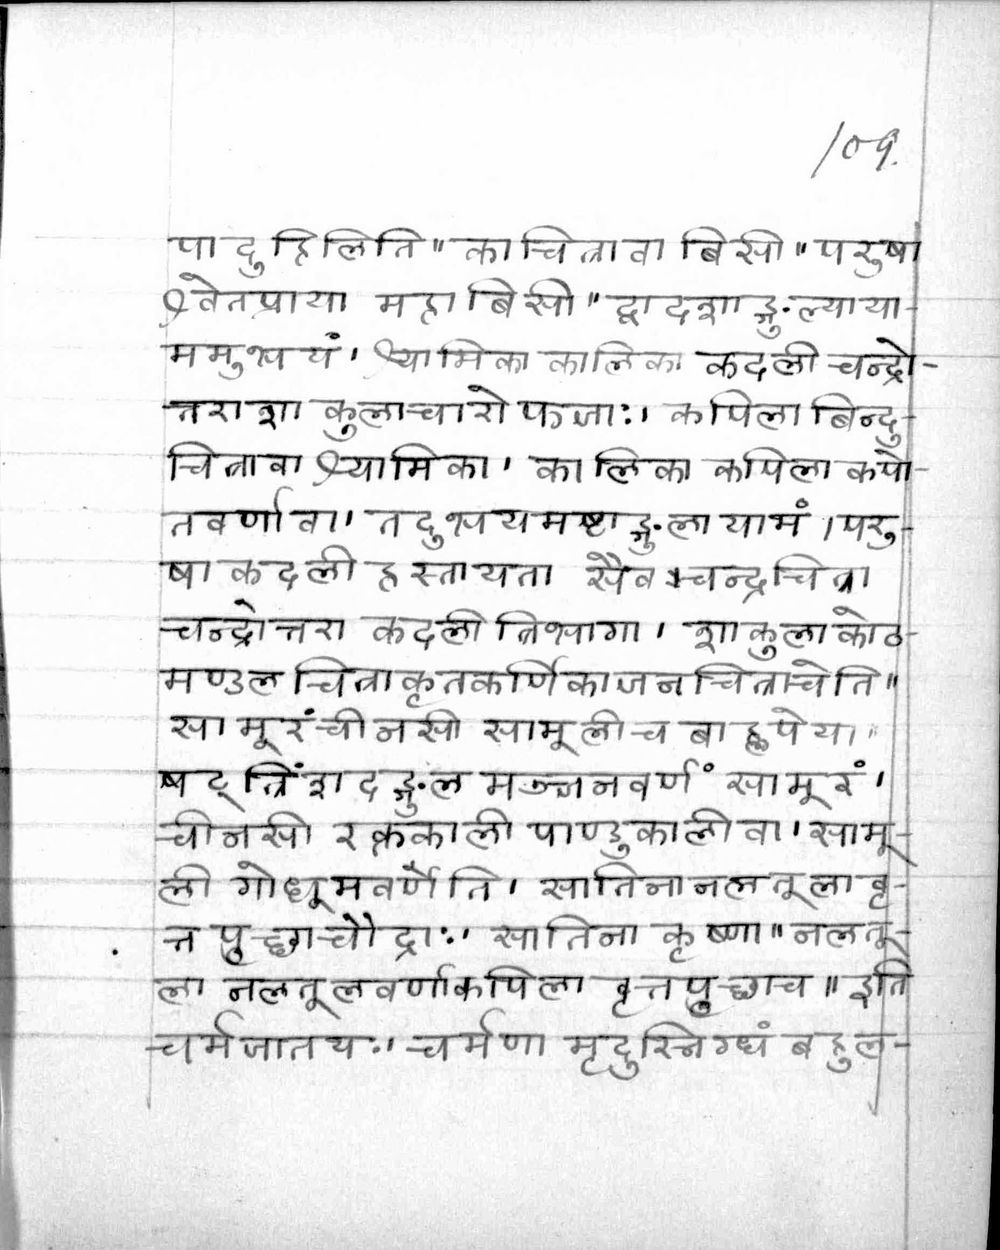 109.
पा दुहिलिति॥ का चित्रावा बिसी॥ परुषा
श्वेतप्राया महाबिसी॥ द्वादशाङ्गुल्याया-
ममुभयं। श्यामिका कालिका कदली चन्द्रो-
त्तराशा कुलाचारोफजाः। कपिला बिन्दु-
चित्रावा श्यामिका। कालिका कपिला कपो-
तवर्णावा। तदुभयमष्टाङ्गुलायामं। परु-
षा कदली हस्तायता सैव चन्द्रचित्रा
चन्द्रोत्तरा कदली त्रिभागा। शाकुला कोठ-
मण्डलचित्राकृतकर्णिकाजनचित्राचेति॥
सामूरंचीनसी सामूलीच बाह्लपेया॥
षट् त्रिंशदङ्गुलमञ्जनवर्णं सामूरं।
चीनसी रक्तकाली पाण्डुकालीवा। सामू-
ली गोधूमवर्णेति। सातिनानलतूलावृ-
त्तपुच्छाचौद्राः। सातिना कृष्णा॥ नलतू-
ला नलतूलवर्णाकपिला वृत्तपुच्छाच॥ इति
चर्मजातयः। चर्मणा मृदुस्निग्धं बहुल-